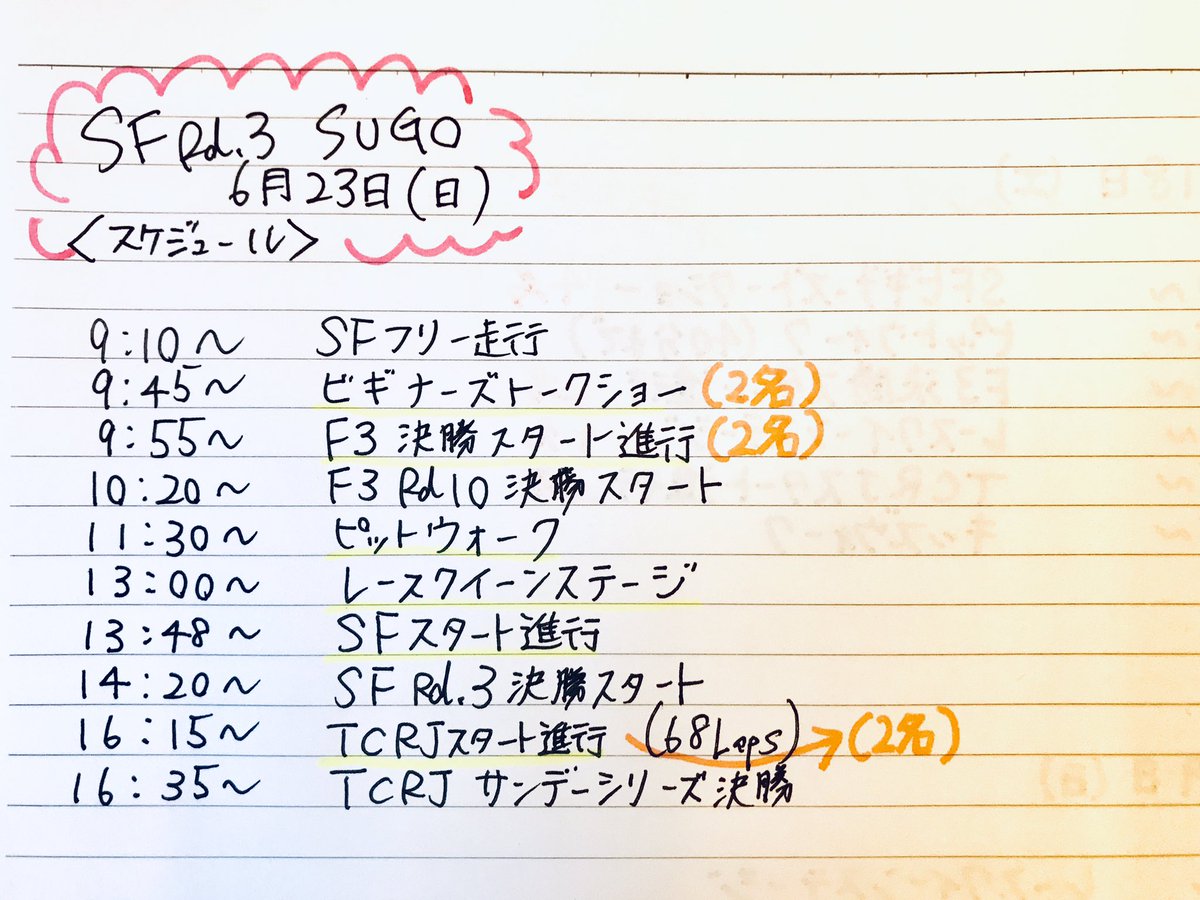 SF Rd.3 SUGO
6月23日(日)
〈スケジュール〉
9:10〜 SFフリー走行
9:45〜 ビギナーズトークショー(2名)
9:55〜 F3 決勝スタート進行(2名)
10:20〜 F3 Rd10 決勝スタート
11:30〜 ピットウォーク
13:00〜 レースクイーンステージ
13:48〜 SFスタート進行
14:20〜 SF Rd.3 決勝スタート
16:15〜 TCRJスタート進行 (68Laps)→(2名)
16:35〜 TCRJ サンデーシリーズ決勝